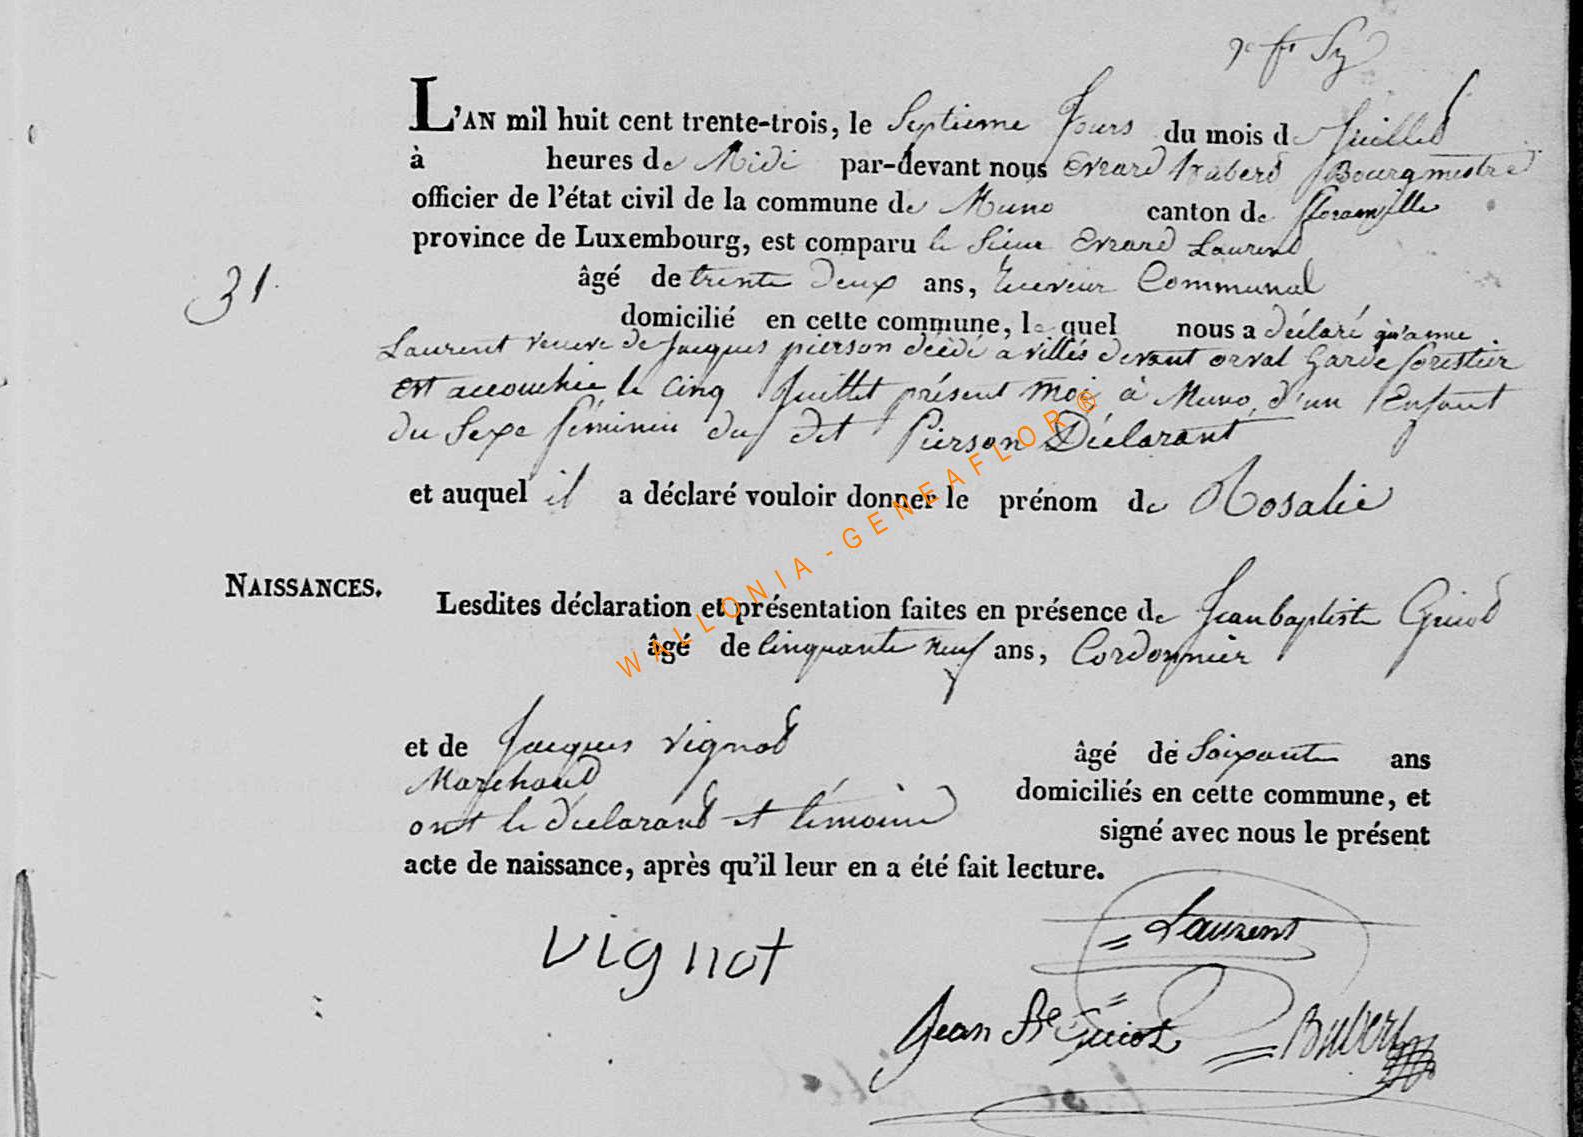 L'AN mil huit cent trente-trois, le Septieme Jours du mois de Juilled
à heures de Midi par-devant nous Evrard Bourgmestre
officier de l'état civil de la commune de Muno canton de florenville
province de Luxembourg, est comparu le Sieur Evrard Laurend
31.
âgé de trente deux ans, Receveur Communal
domicilié en cette commune, le quel nous a déclaré qu'anne
Laurent veuve de Jacques pierson décédé a villés devant orval Garde forestier
est accouchée le cinq Juillet présent Mois à Muno, d'un Enfant
du Sexe féminin du dit Pierson Déclarant
et auquel il a déclaré vouloir donner le prénom de Rosalie
NAISSANCES.
Lesdites déclaration et présentation faites en présence de Jeanbaptiste Guiod
âgé de Cinquante neuf ans, Cordonnier
et de Jacques Vignod âgé de Soixante ans
Marchand domiciliés en cette commune, et
ont le déclarand et témoins signé avec nous le présent
acte de naissance, après qu'il leur en a été fait lecture.
Laurent
Vignot
Jean Bte Guiot
WALLONIA-GENEAFLOR®